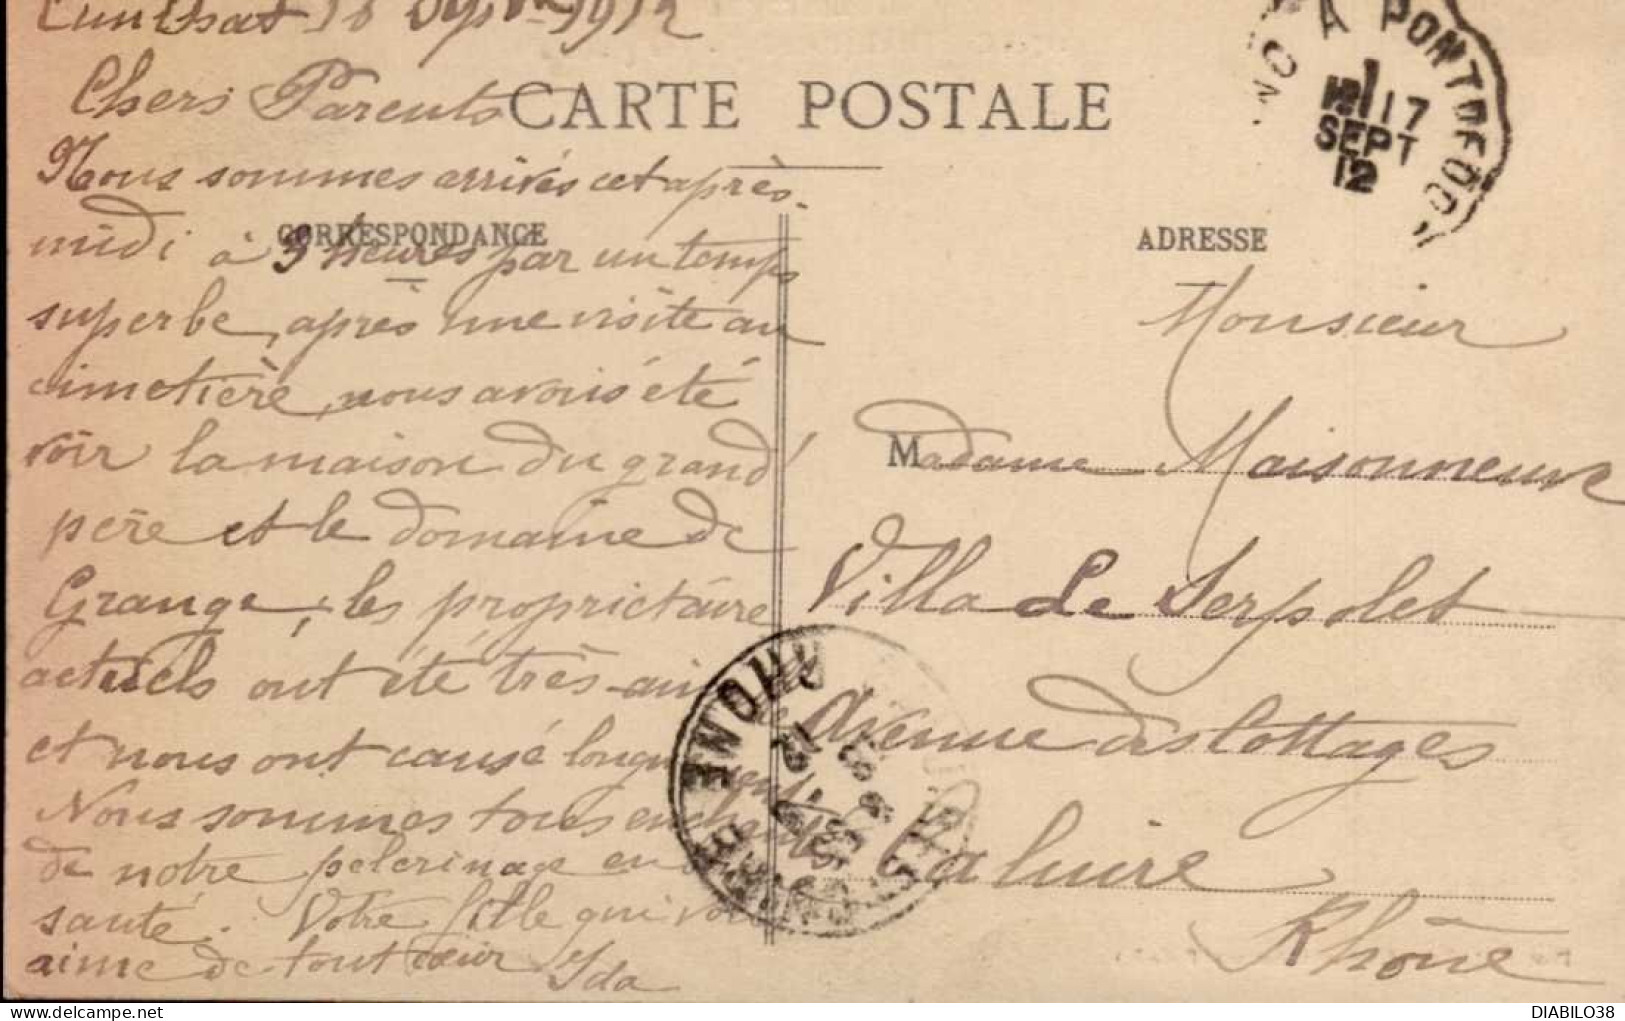 Cunlhat 16 Septbre 1912
Chers Parents
CARTE POSTALE
Nous sommes arrivés cet après-
midi à 3 Heures par un temps
CORRESPONDANCE
superbe, après une visite au
cimetière, nous avons été
voir la maison du grand
père et le domaine de
Grange, les propriétaire
actuels ont été très
et nous ont causé longuement
Nous sommes tous enchantés
de notre pelerinage en
santé. Votre fille qui vous
aime de tout cœur Ida
A PONTDEDO
17
SEPT
12
ADRESSE
Monsieur
Madame Maisonneuve
Villa Le Serpolet
Avenue des Cottages
Caluire
Rhône
RHONE
12
DIABILO38